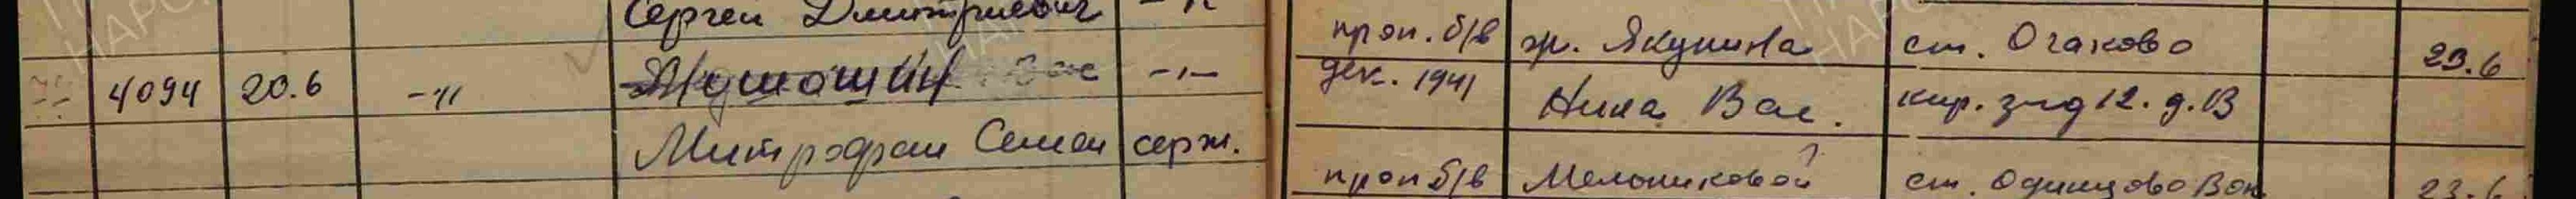 Сергей Дмитриевич -"-
4094 20.6 -"- Вас -"-
Митрофан Семен серж.
проп. б/в ж. Якунина ст. Очаково 23.6
дек. 1941 Нина Вас. кир. звд 12. д. В
проп б/в Мельниковой ст. Одинцово Вок 23.6